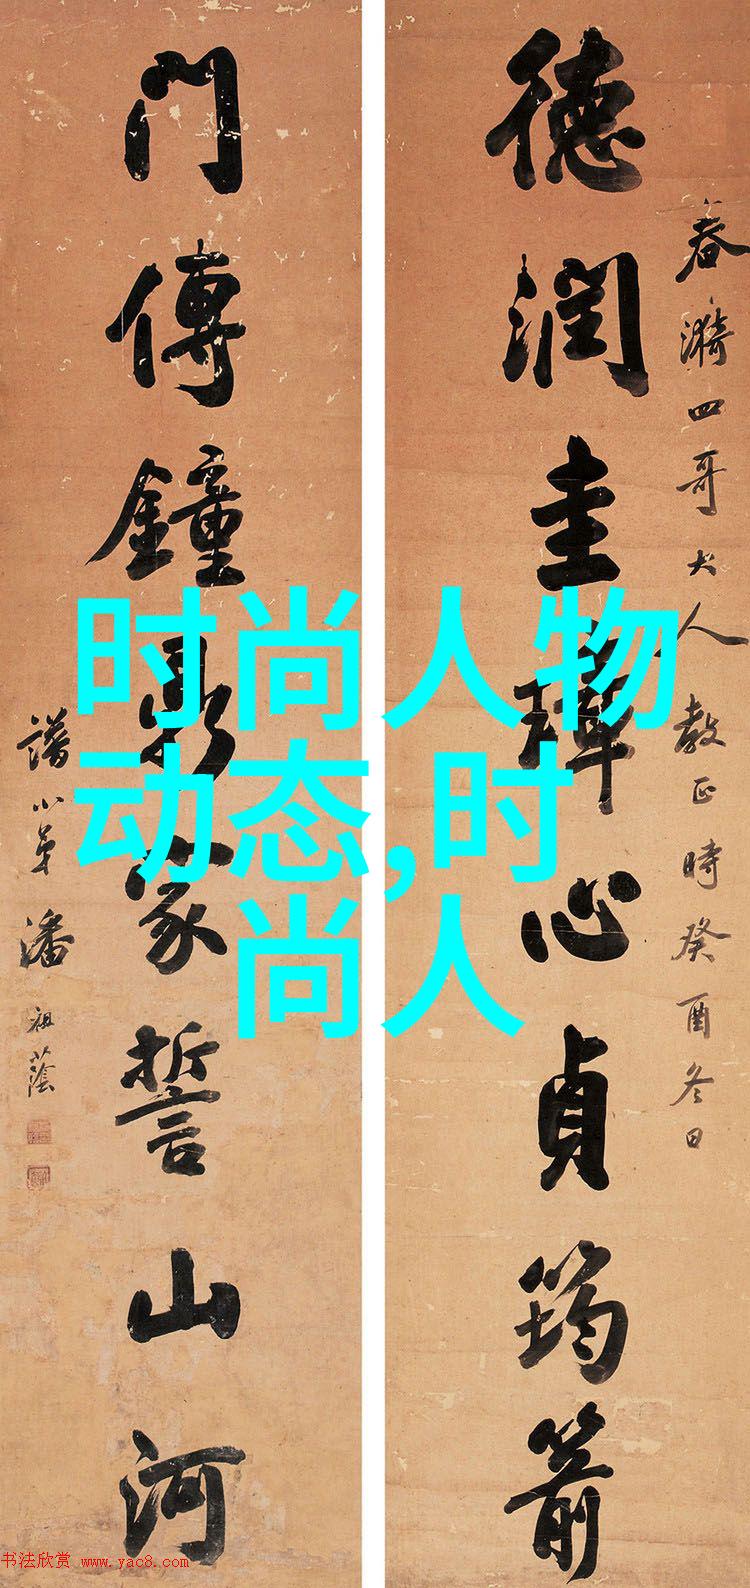 春漪四哥大人教正時癸酉冬日
德潤圭璋心貞筠箭
門傳鐘鼎家誓山河
譜小弟潘祖蔭
时尚人物
动态,时
尚人
书法欣赏 www.yac8.com